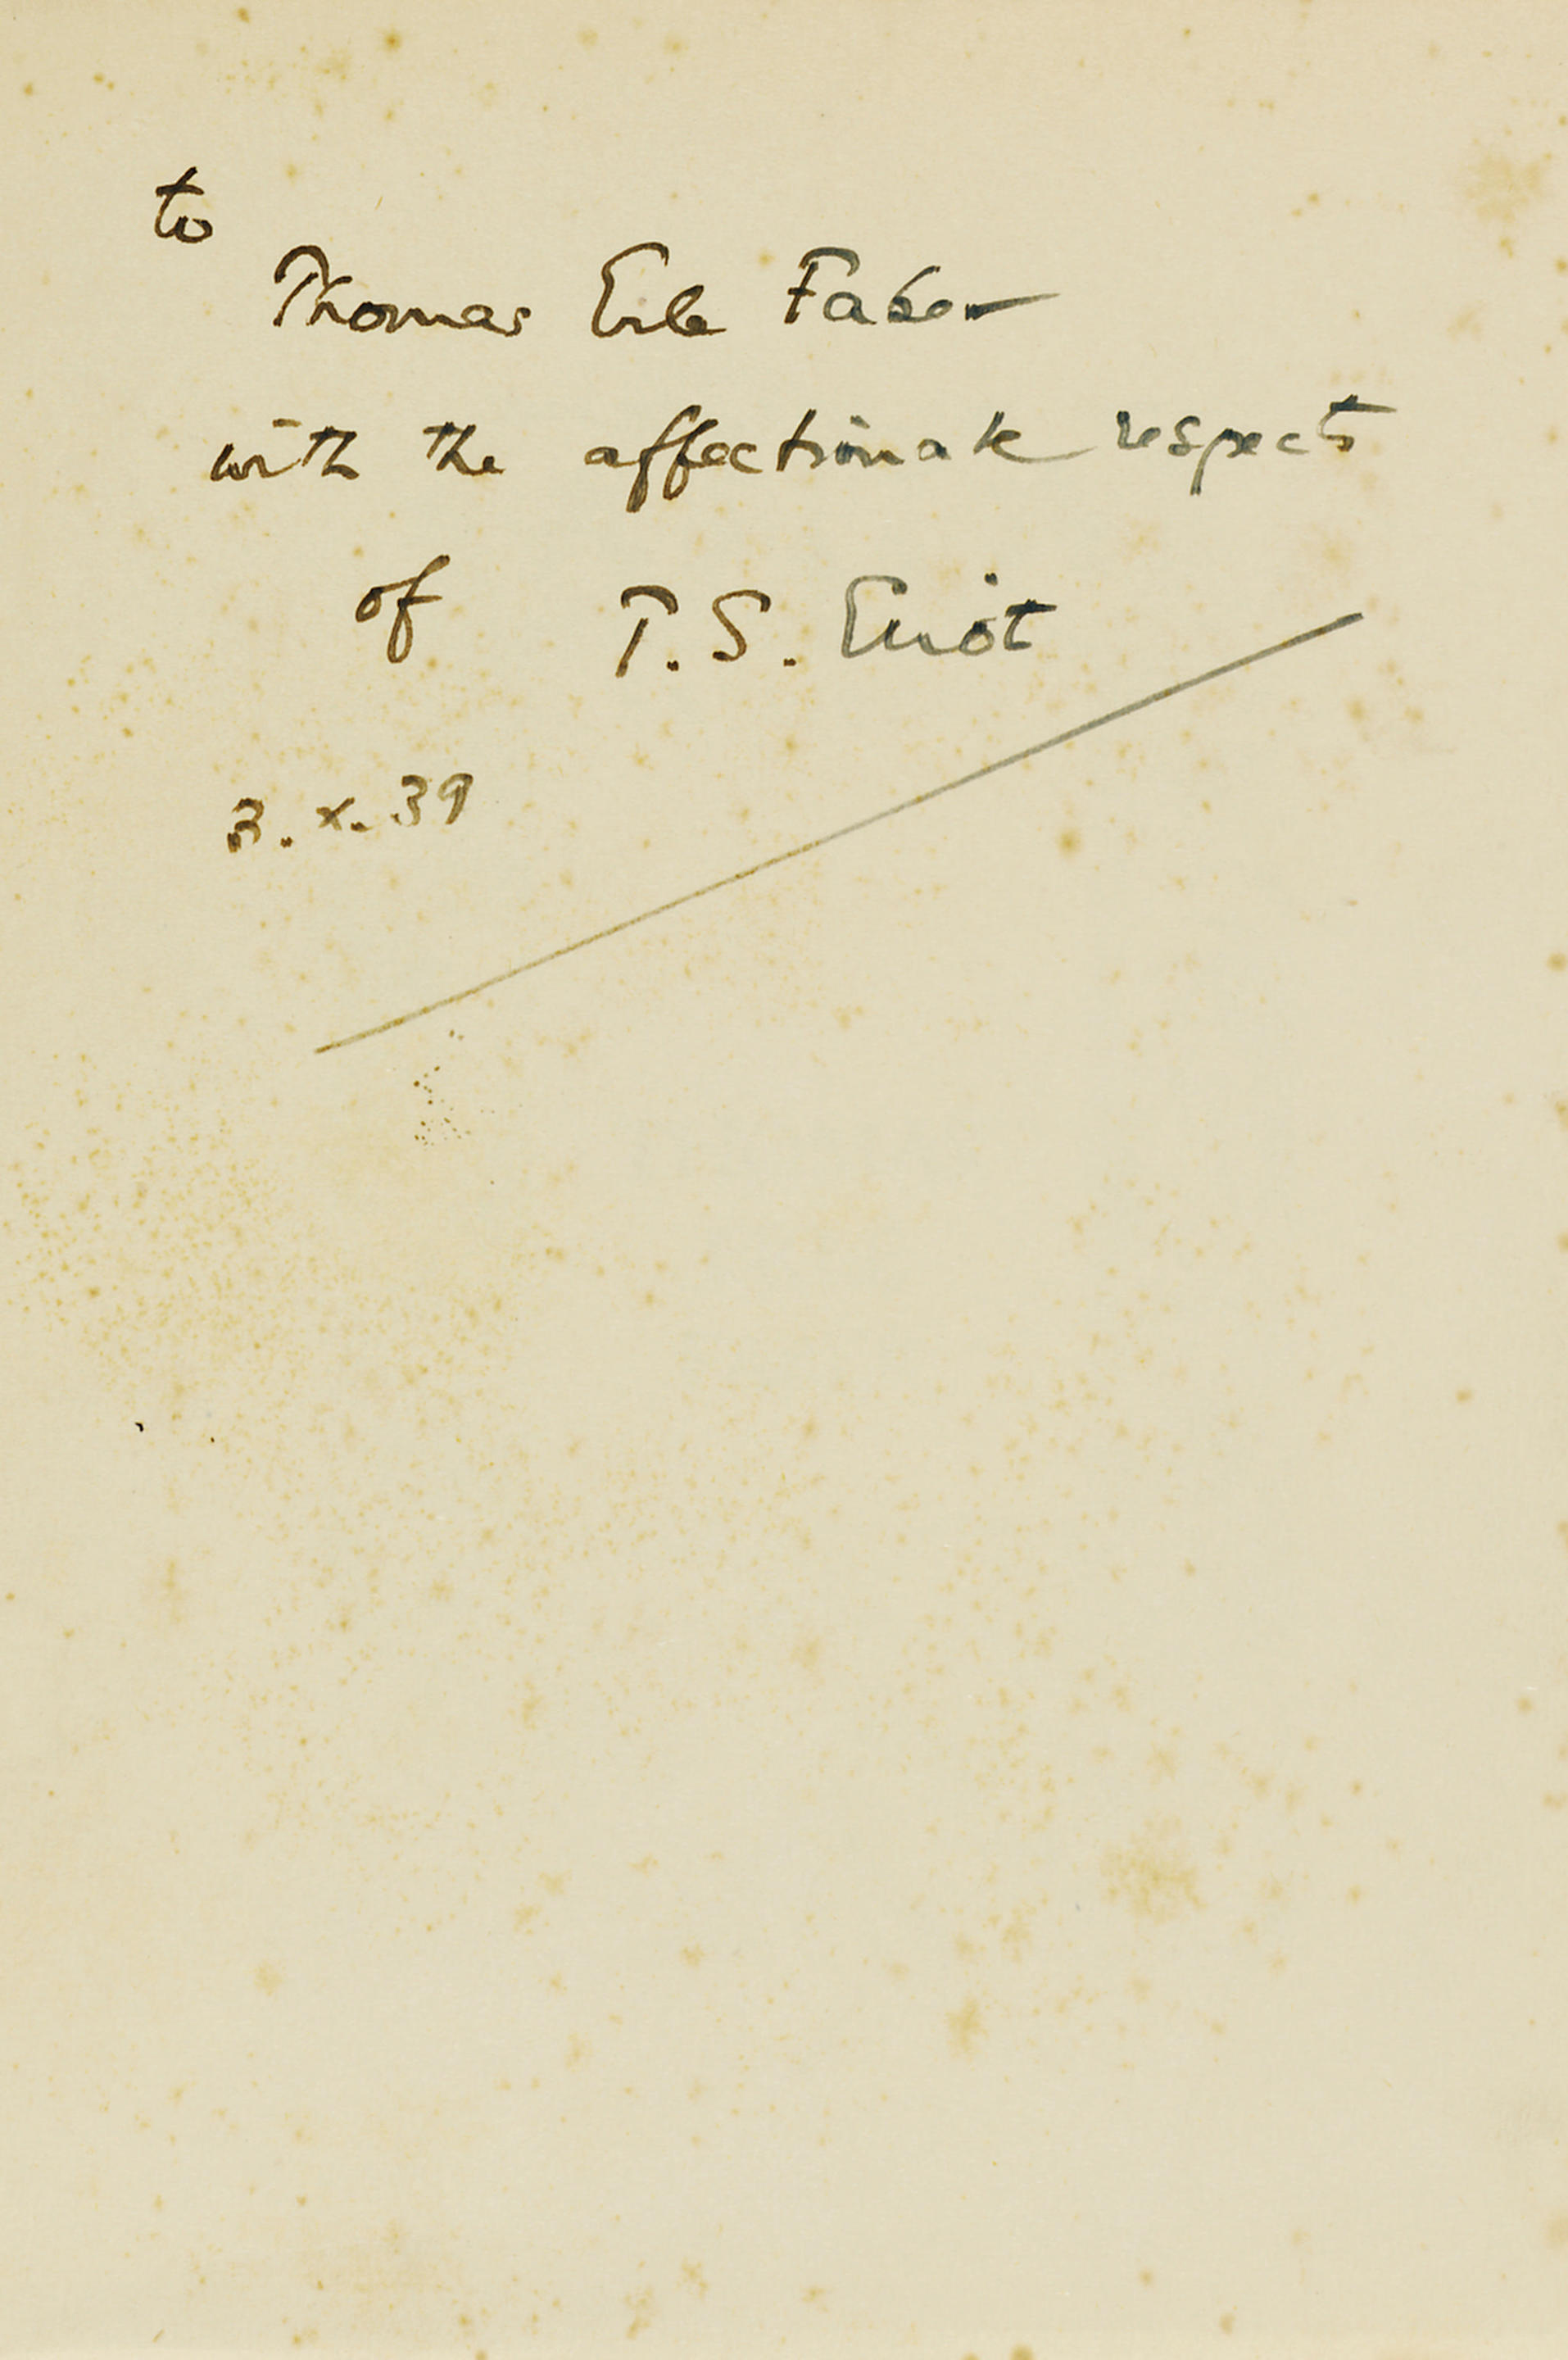 to
Thomas Erle Faber
with the affectionate respects
of T. S. Eliot
3. x. 39